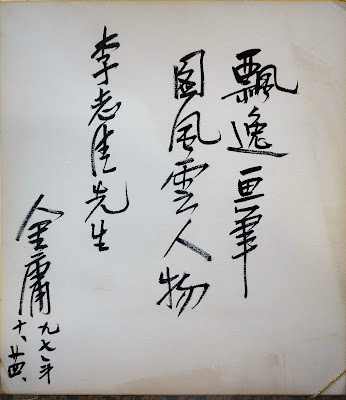 飄逸画筆
图風雲人物
李志清先生
金庸
九七年
十、廿四、